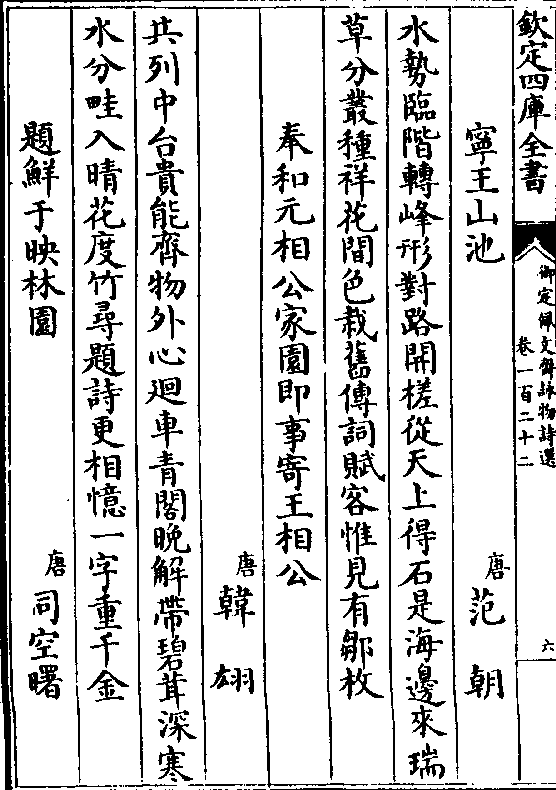 欽定四庫全書
御定佩文齋詠物詩選
卷一百二十二
六
寧王山池
唐 范朝
水勢臨階轉峰形對路開槎從天上得石是海邊來瑞
草分叢種祥花間色栽舊傳詞賦客惟見有鄒枚
奉和元相公家園即事寄王相公
唐 韓翃
共列中台貴能齊物外心迴車青閣晚解帶碧茸深寒
水分畦入晴花度竹尋題詩更相憶一字重千金
題鮮于映林園
唐 司空曙